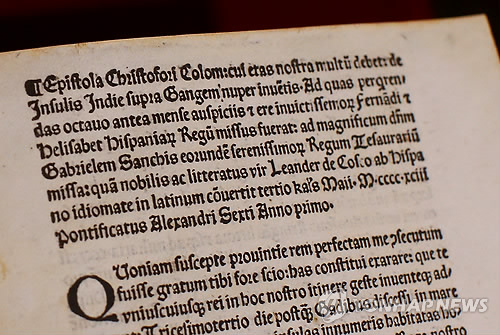 ¶ Epistola Christofori Colom: cui etas nostra multū debet: de
Insulis Indie supra Gangem nuper inuētis. Ad quas perqren-
das octauo antea mense auspiciis ⁊ ere inuictissemoꝝ Fernādi ⁊
Helisabet Hispaniaꝝ Regū missus fuerat: ad magnificum dñm
Gabrielem Sanchis eorundē serenissimoꝝ Regum Tesaurariū
missa: quā nobilis ac litteratus vir Leander de Cosco ab Hispa
no idiomate in latinum cōuertit tertio kaľs Maii. M.cccc.xciii
Pontificatus Alexandri Sexti Anno primo.
Quoniam suscepte prouintie rem perfectam me ꝯsecutum
fuisse gratum tibi fore scio: has constitui exarare: que te
vniuscuiusꝗ rei in hoc nostro itinere geste inuenteꝗ ad-
Tricesimotertio die postꝗ̄ Gadibus discessi in mare
insulas innumeris habitatas
YONHAPNEWS